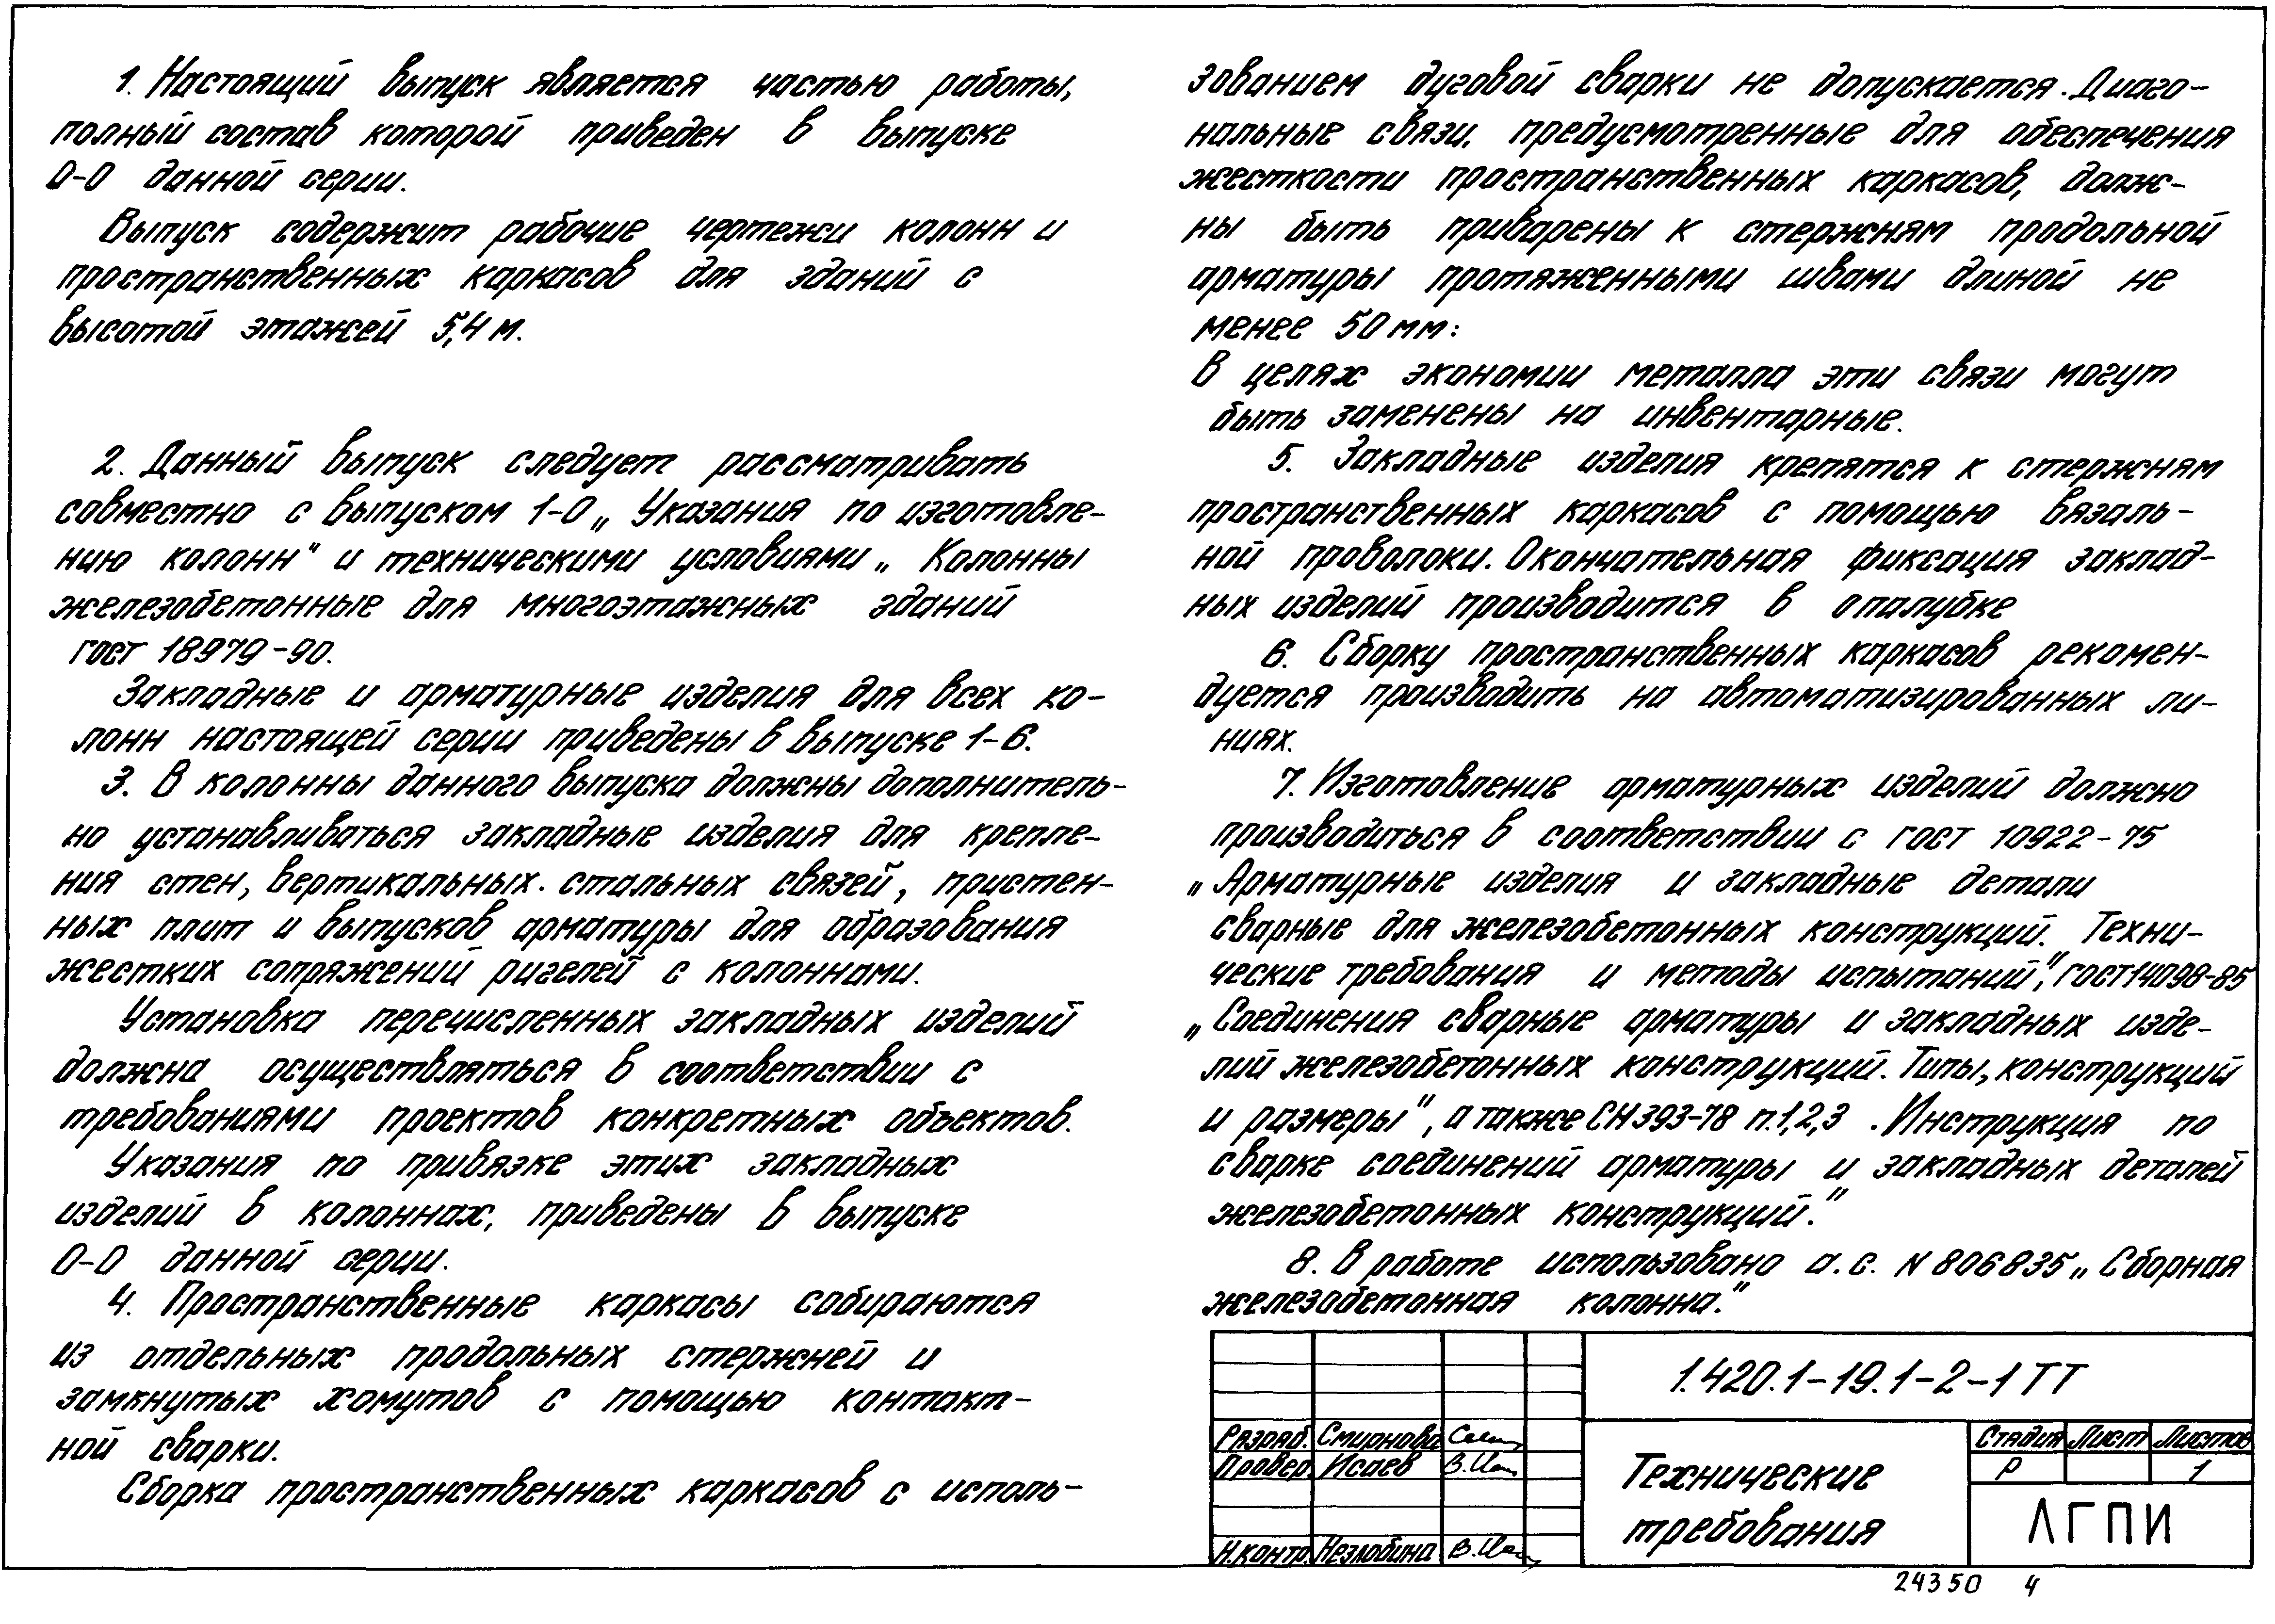 1. Настоящий выпуск является частью работы,
полный состав которой приведен в выпуске
0-0 данной серии.
Выпуск содержит рабочие чертежи колонн и
пространственных каркасов для зданий с
высотой этажей 5,4 м.
2. Данный выпуск следует рассматривать
совместно с выпуском 1-0 „Указания по изготовле-
нию колонн" и техническими условиями „Колонны
железобетонные для многоэтажных зданий
ГОСТ 18979-90.
Закладные и арматурные изделия для всех ко-
лонн настоящей серии приведены в выпуске 1-6.
3. В колонны данного выпуска должны дополнитель-
но устанавливаться закладные изделия для крепле-
ния стен, вертикальных. стальных связей, пристен-
ных плит и выпусков арматуры для образования
жестких сопряжений ригелей с колоннами.
Установка перечисленных закладных изделий
должна осуществляться в соответствии с
требованиями проектов конкретных объектов.
Указания по привязке этих закладных
изделий в колоннах, приведены в выпуске
0-0 данной серии.
4. Пространственные каркасы собираются
из отдельных продольных стержней и
замкнутых хомутов с помощью контакт-
ной сварки.
Сборка пространственных каркасов с исполь-
зованием дуговой сварки не допускается. Диаго-
нальные связи, предусмотренные для обеспечения
жесткости пространственных каркасов, долж-
ны быть приварены к стержням продольной
арматуры протяженными швами длиной не
менее 50 мм:
В целях экономии металла эти связи могут
быть заменены на инвентарные.
5. Закладные изделия крепятся к стержням
пространственных каркасов с помощью вязаль-
ной проволоки. Окончательная фиксация заклад-
ных изделий производится в опалубке
6. Сборку пространственных каркасов рекомен-
дуется производить на автоматизированных ли-
ниях.
7. Изготовление арматурных изделий должно
производиться в соответствии с ГОСТ 10922-75
„Арматурные изделия и закладные детали
сварные для железобетонных конструкций. Техни-
ческие требования и методы испытаний", ГОСТ 14098-85
„Соединения сварные арматуры и закладных изде-
лий железобетонных конструкций. Типы, конструкций
и размеры", а также СН 393-78 п.1,2,3 . Инструкция по
сварке соединений арматуры и закладных деталей
железобетонных конструкций."
8. В работе использовано а.с. N 806835 „Сборная
железобетонная колонна."
1.420.1-19.1-2-1 ТТ
Разраб. Смирнова
Провер Исаев В.Иса
Н.контр. Незлобина В.Иса
Технические
требования
Стадия Лист Листов
Р 1
ЛГПИ
24350 4